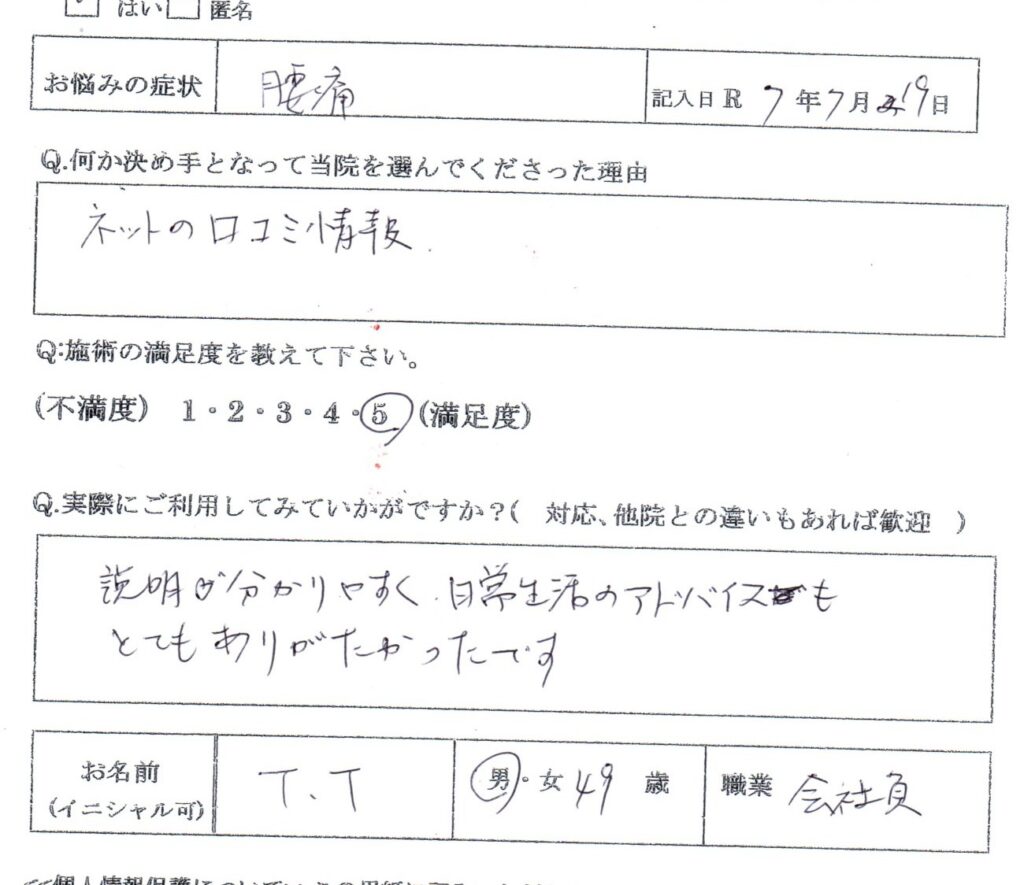 はい 匿名
お悩みの症状 腰痛 記入日 R 7 年 7 月 19 日
Q.何か決め手となって当院を選んでくださった理由
ネットの口コミ情報.
Q:施術の満足度を教えて下さい。
(不満度) 1・2・3・4・5 (満足度)
Q.実際にご利用してみていかがですか?( 対応、他院との違いもあれば歓迎 )
説明が分かりやすく、日常生活のアドバイスも
とてもありがたかったです
お名前 T.T 男・女 49 歳 職業 会社員
(イニシャル可)